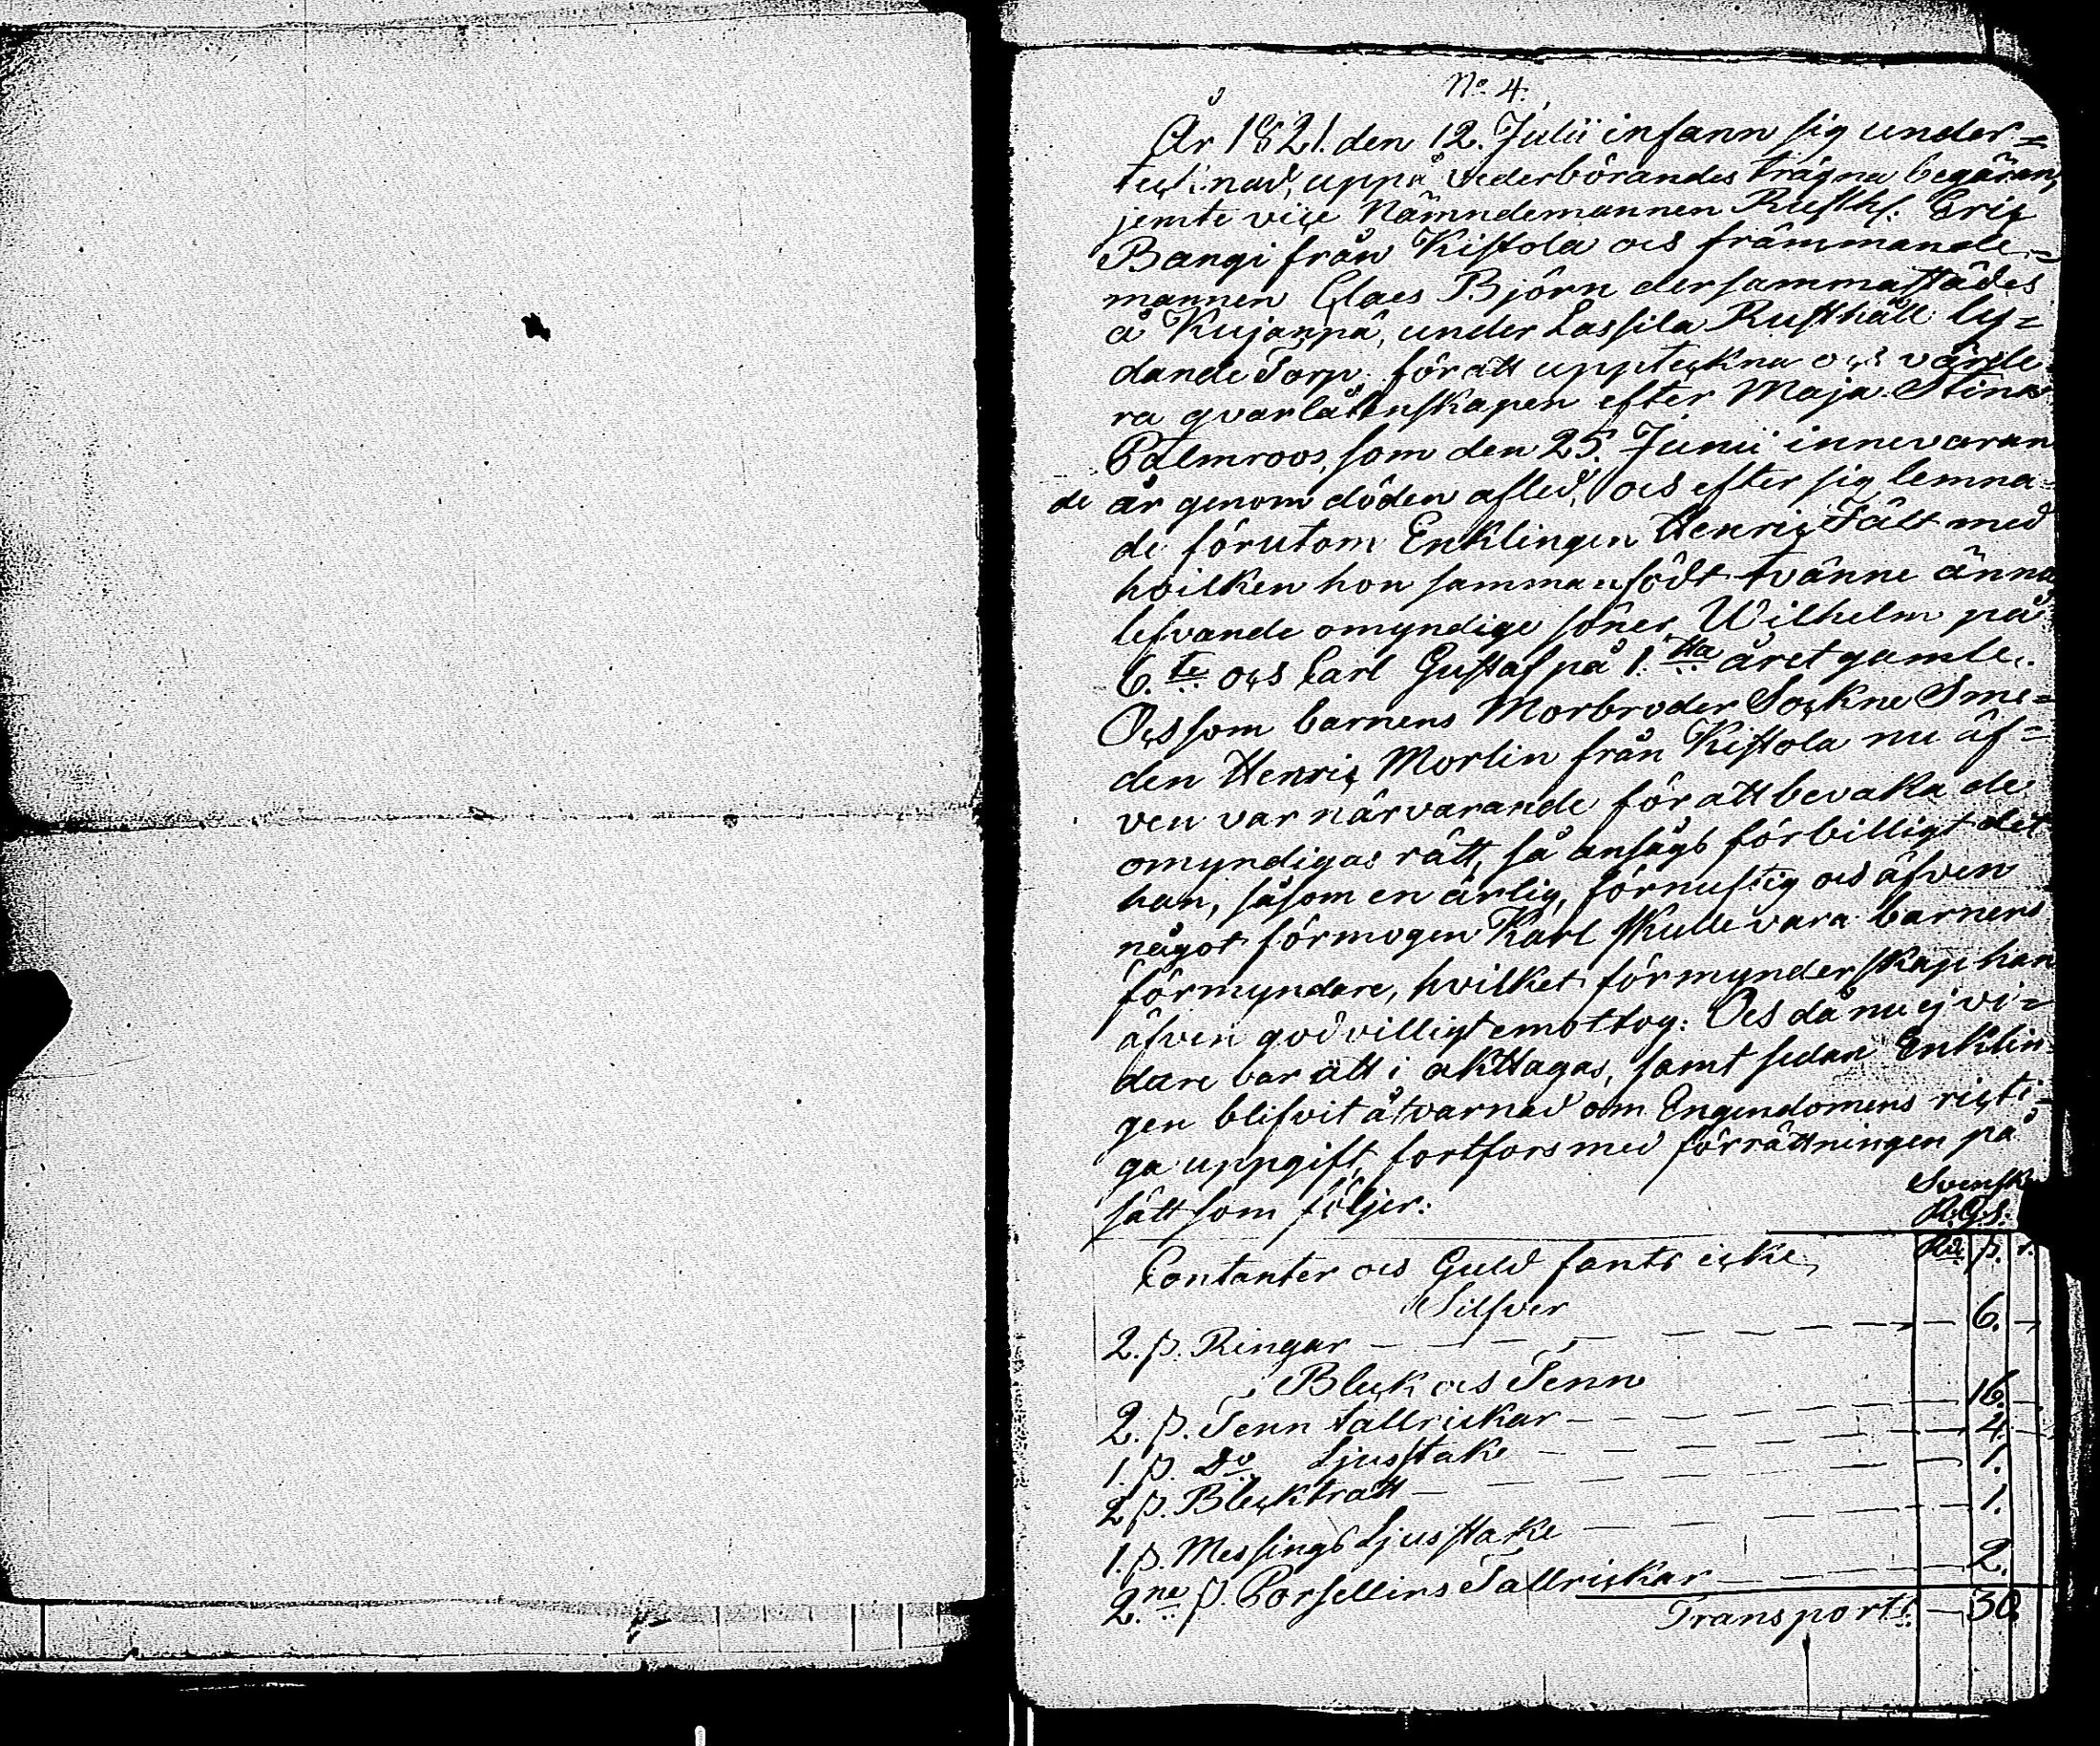 No. 4.
År 1821. den 12. Julii infann sig under=
tecknad, uppå vederbörandes trägna begäran,
jemte vice Nämndemannen Rusth: Eric
Bangi från Kistola och främmande=
mannen Claes Björn dersammastädes
å Kujanpä, under Lassila Rusthåll ly=
dande Torp. för att uppteckna och värde
ra qvarlåtenskapen efter Maja Stina
Palmroos, som den 25. Junii innevaran
de år genom döden afled, och efter sig lemna=
de förutom Enklingen Henric Fält med
hvilken hon samman födt tvänne ännu
lefvande omyndige söner, Wilhelm på
6.te och Carl Gustaf på 1.sta året gamle.
Och som barnens Morbroder Sockne Sme=
den Henric Morlin från Kistola nu äf=
ven var närvarande för att bevaka de
omyndigas rätt, så ansågs för billigt det
han, såsom en ärlig, förnuftig och äfven
något förmogen Karl skulle vara barnens
förmyndare, hvilket förmynderskap han
äfven godvilligt emottog. Och då nu ej vi=
dare var ätt i akttagas, samt sedan Enklin=
gen blifvit åtvarnad om Engendomens ricti=
ga uppgift, fortfors med förrättningen på
sätt som följer:
Svensk
R.G.S.
Contanter och Guld fants icke, Rd. s. r.
Silfver
2. p. Ringar — — — 6. —
Bleck och Tenn
2. p. Tenn tallrickar — — — 16. —
1. p. Do Ljusstake — — — 4. —
2 p. Blecktratt — — — 1.
1. p. Messings Ljusstake — — — 1.
2.ne p. Porsellins Tallrickar — — — 2.
Transport — 30.